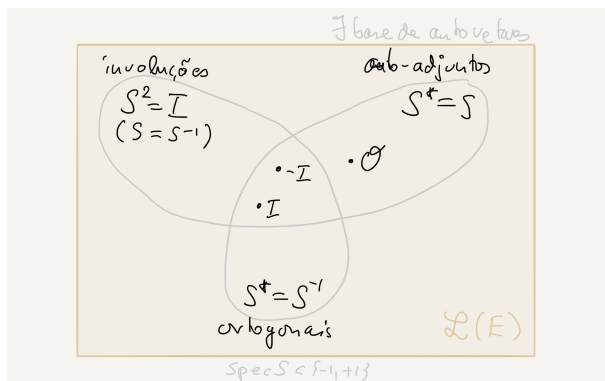 ∃ base de autovetores
involuções
auto-adjuntos
S² = I
S* = S
(S = S⁻¹)
• -I
• O
• I
S* = S⁻¹
ortogonais
L(E)
Spec S ⊂ {-1, +1}